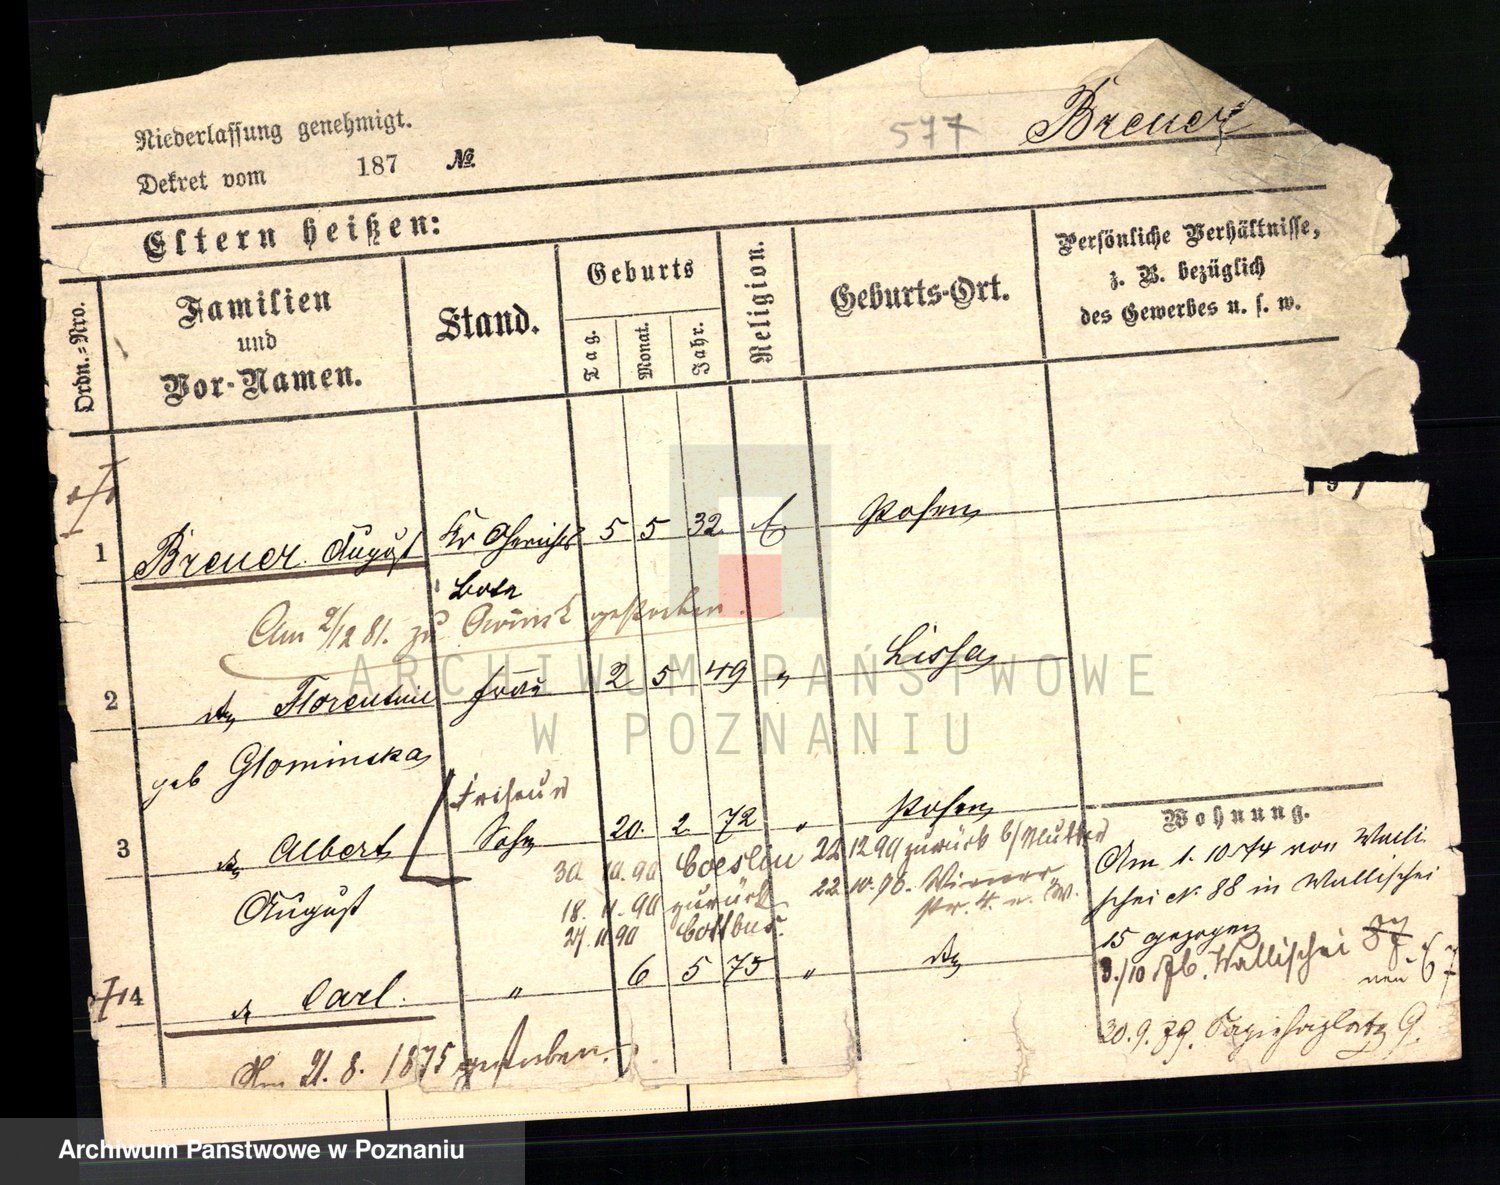 Niederlassung genehmigt.
Dekret vom 187 №
577
Breuer
Eltern heißen:
Ordn.=Nro.
Familien
und
Vor-Namen.
Stand.
Geburts
Tag.
Monat.
Jahr.
Religion.
Geburts-Ort.
Persönliche Verhältnisse,
z. B. bezüglich
des Gewerbes u. s. w.
1 Breuer August Kr Gerichts 5 5 32 Posen
Bote
Am 2/12 81. zu gestorben.
2 Florentine Frau 2 5 49 " Lissa
geb Glominska
Friseur
3 Albert Sohn 20. 2 72 " Posen
August
30. 10. 90 Coeslin
18. 11. 90 zurück
27. 11 90 Cottbus.
22 12 90 zurück b/ Mutter
22. 10. 90. Wiener
str. 4.
4 Carl. " 6 5 75 "
Am 21. 8. 1875 gestorben.
Wohnung.
Am 1. 10 74 von Walli
schei № 88 in Wallischei
15 gezogen
3./10 Wallischei 87
neu 67
30. 9. 79. Sapiehaplatz 9.
ARCHIWUM PAŃSTWOWE
W POZNANIU
Archiwum Państwowe w Poznaniu